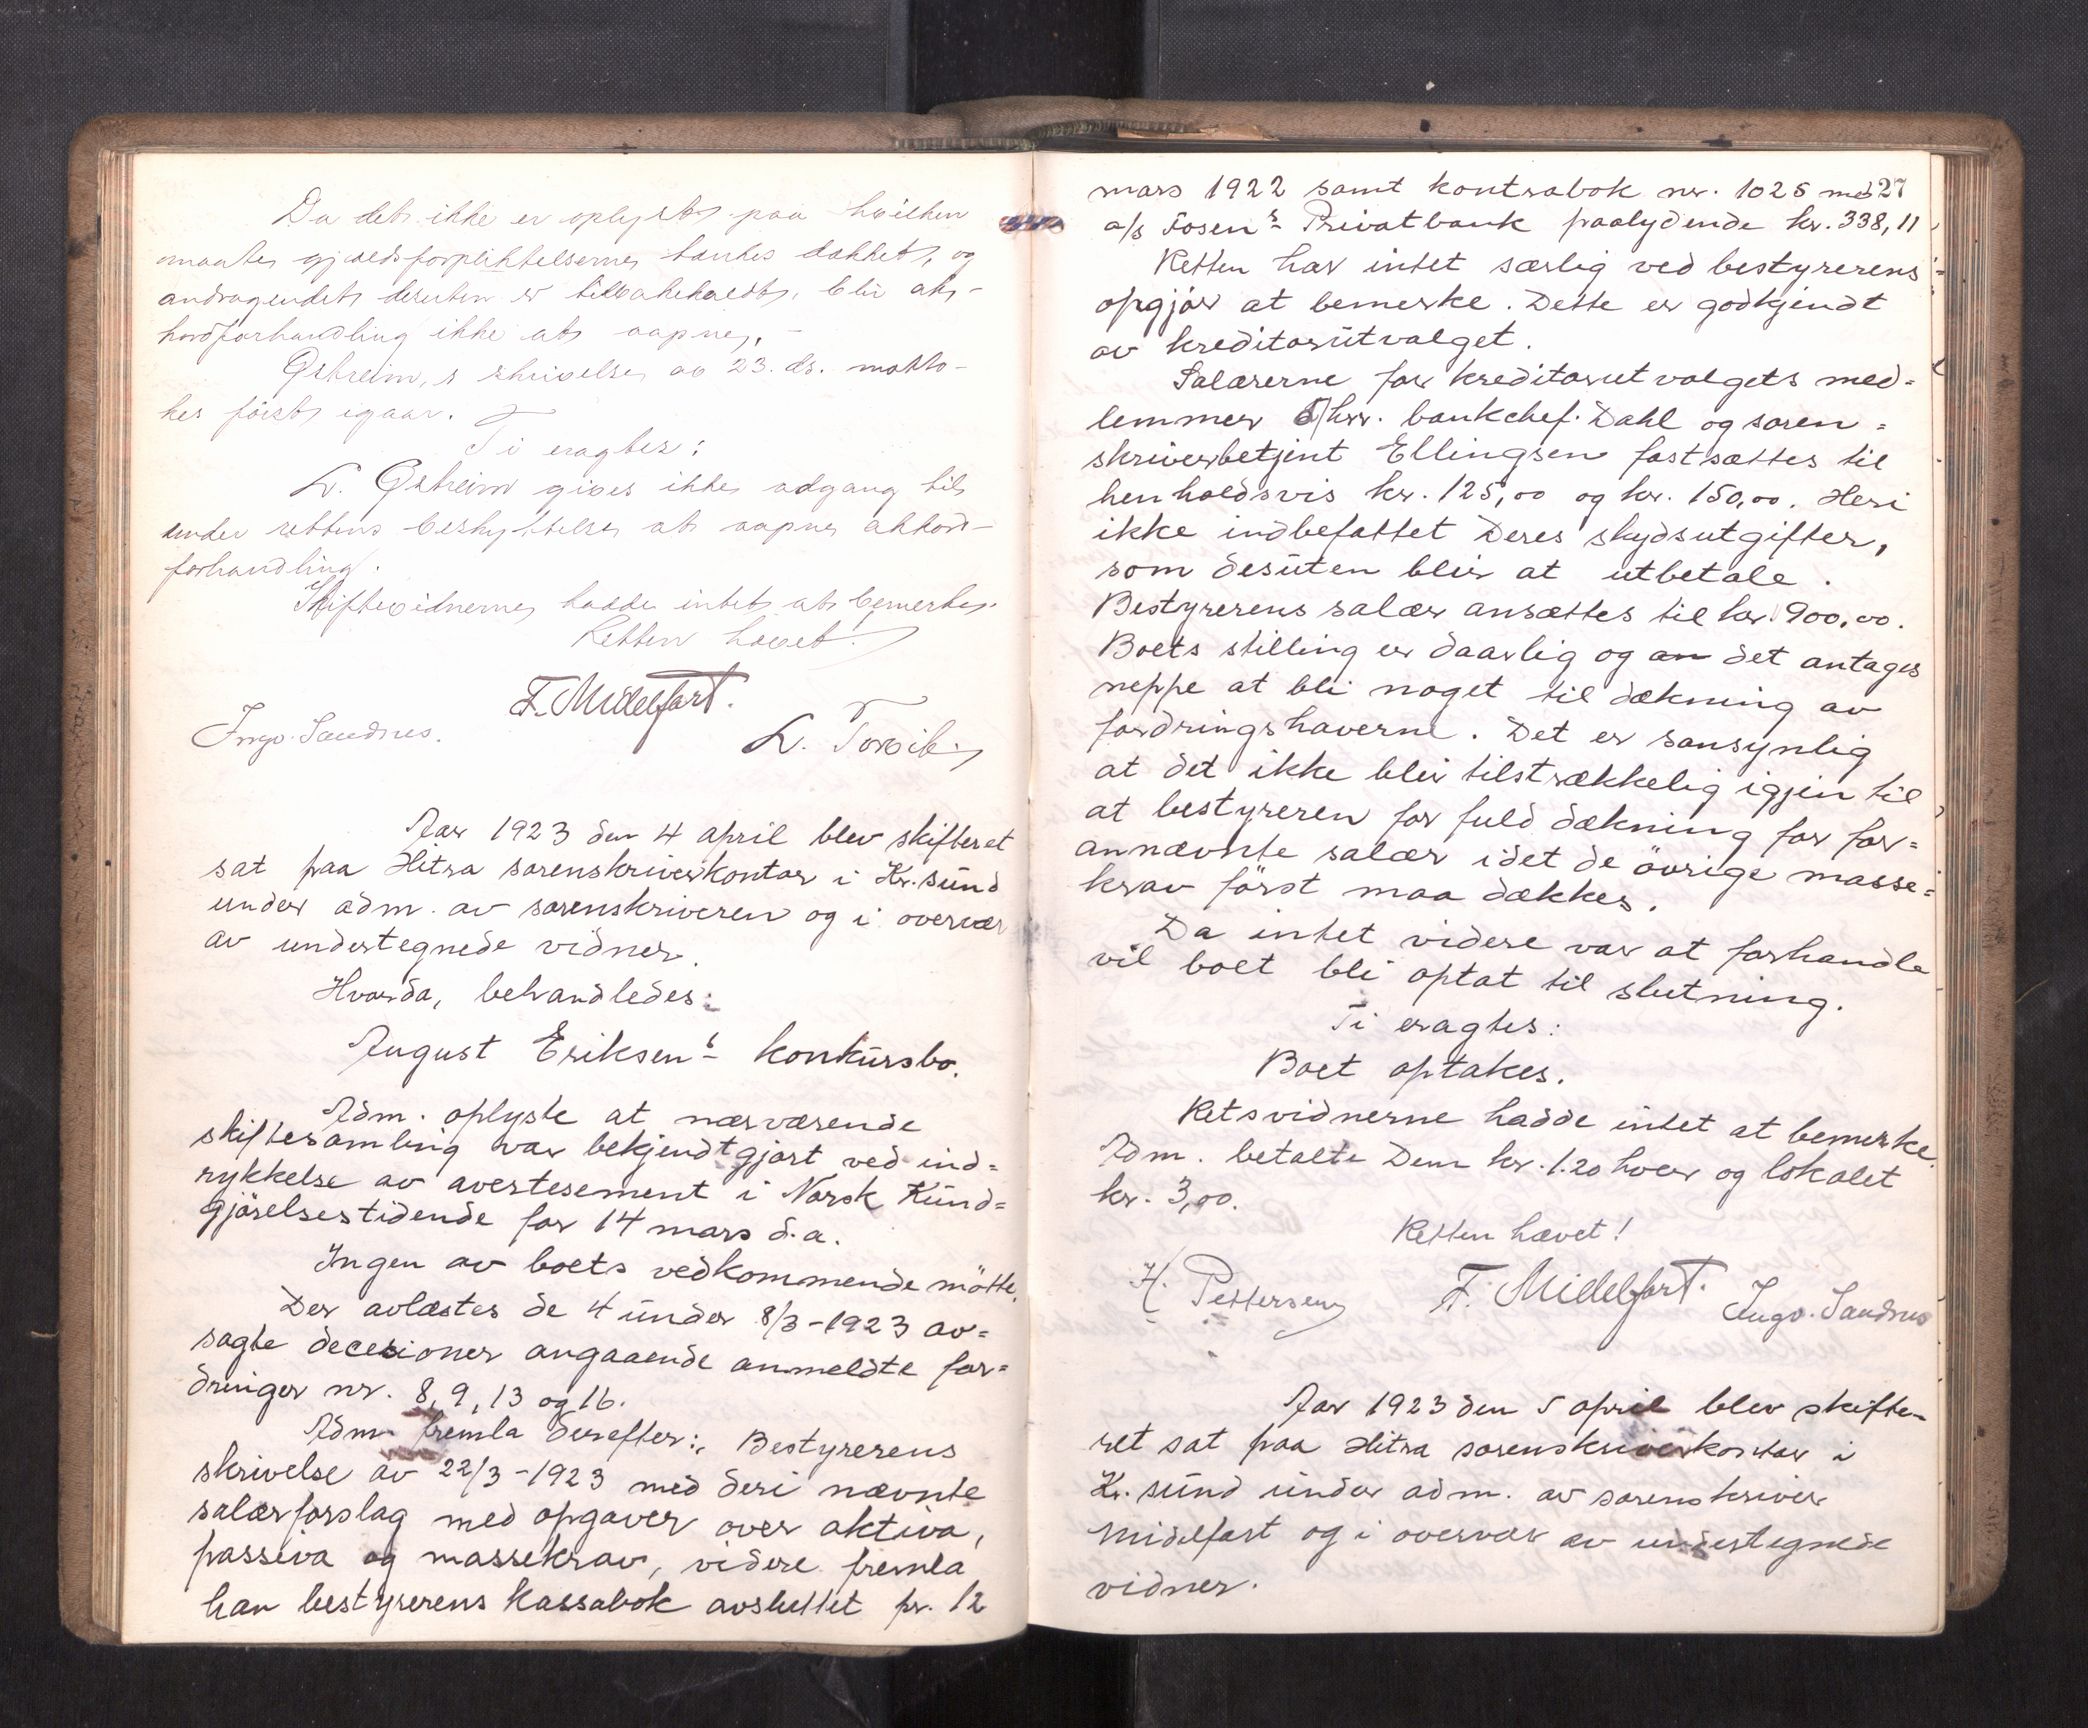 Da det ikke er oplyst paa hvilken
maate gjældsforpliktelserne tænkes dækket, og
andragendet desuten er tilbakeholdt, blir ak-
kordforhandling ikke at aapne. -
Østreim,s skrivelse av 23. ds. motto-
kes først igaar.
Ti eragtes:
L. Østreim gives ikke adgang til
under rettens beskyttelse at aapne akkord-
forhandling.
Skiftevidnerne hadde intet at bemerke.
Retten hævet.
F. Midelfart.
Ingv. Sandnes.
L. Torvik.
Aar 1923 den 4 april blev skifteret
sat paa Hitra sorenskriverkontor i Kr.sund
under adm. av sorenskriveren og i overvær
av undertegnede vidner.
Hvorda, behandledes:
August Eriksens konkursbo.
Adm. oplyste at nærværende
skiftesamling var bekjendtgjort ved ind=
rykkelse av avertesement i Norsk Kund=
gjörelsestidende for 14 mars d.a.
Ingen av boets vedkommende mötte.
Der avlæstes de 4 under 8/3-1923 av=
sagte decesioner angaaende anmeldte for=
dringer nr. 8, 9, 13 og 16.
Adm. fremla derefter:, Bestyrerens
skrivelse av 22/3-1923 med deri nævnte
salærforslag med opgaver over aktiva,
passiva og massekrav, videre fremla
han bestyrerens kassabok avsluttet pr. 12
mars 1922 samt kontrabok nr. 1025 med 27
a/s Fosens Privatbank paalydende kr. 338,11
Retten har intet særlig ved bestyrerens
opgjör at bemerke. Dette er godkjendt
av kreditorutvalget.
Salærerne for kreditorutvalgets med=
lemmer hrr. bankchef. Dahl og soren=
skriverbetjent Ellingsen fastsættes til
henholdsvis kr. 125,00 og kr. 150,00. Heri
ikke indbefattet Deres skydsutgifter,
som desuten blir at utbetale.
Bestyrerens salær ansættes til kr. 900,00.
Boets stilling er daarlig og an det antages
neppe at bli noget til dækning av
fordringshaverne. Det er sansynlig
at det ikke blir tilstrækkelig igjen til
at bestyreren for fuld dækning for for=
annævnte salær idet de övrige masse=
krav först maa dækkes.
Da intet videre var at forhandle
vil boet bli optat til slutning.
Ti eragtes:
Boet optakes.
Retsvidnerne hadde intet at bemerke.
Adm. betalte Dem kr. 1.20 hver og lokalet
kr. 3,00.
Retten hævet!
H. Pettersen
F. Midelfart.
Ingv. Sandnes
Aar 1923 den 5 april blev skifte-
ret sat paa Hitra sorenskriverkontor i
Kr.sund under adm. av sorenskriver
Midelfart og i overvær av undertegnede
vidner.